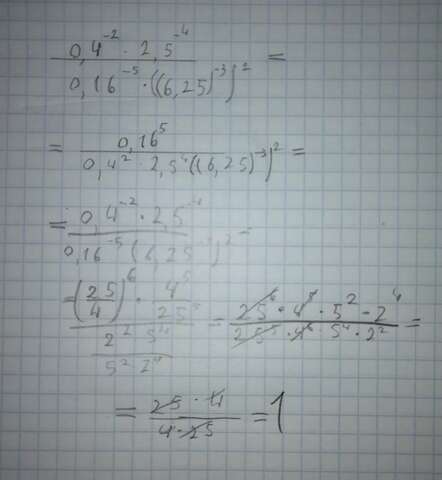 0,4^-2 · 2,5^-4 / 0,16^-5 · ((6,25)^-3)^2 =
= 0,16^5 / 0,4^2 · 2,5^4((6,25)^-3)^2 =
= 0,4^-2 · 2,5 / 0,16^-5 (6,25
= (25/4)^6 · 4^5/25^5 / 2^2 5^4 / 5^2 2^4 = 25^6 · 4^5 · 5^2 - 2^4 / 25^5 · 4^6 · 5^4 · 2^2 =
= 25 · 4 / 4 · 25 = 1